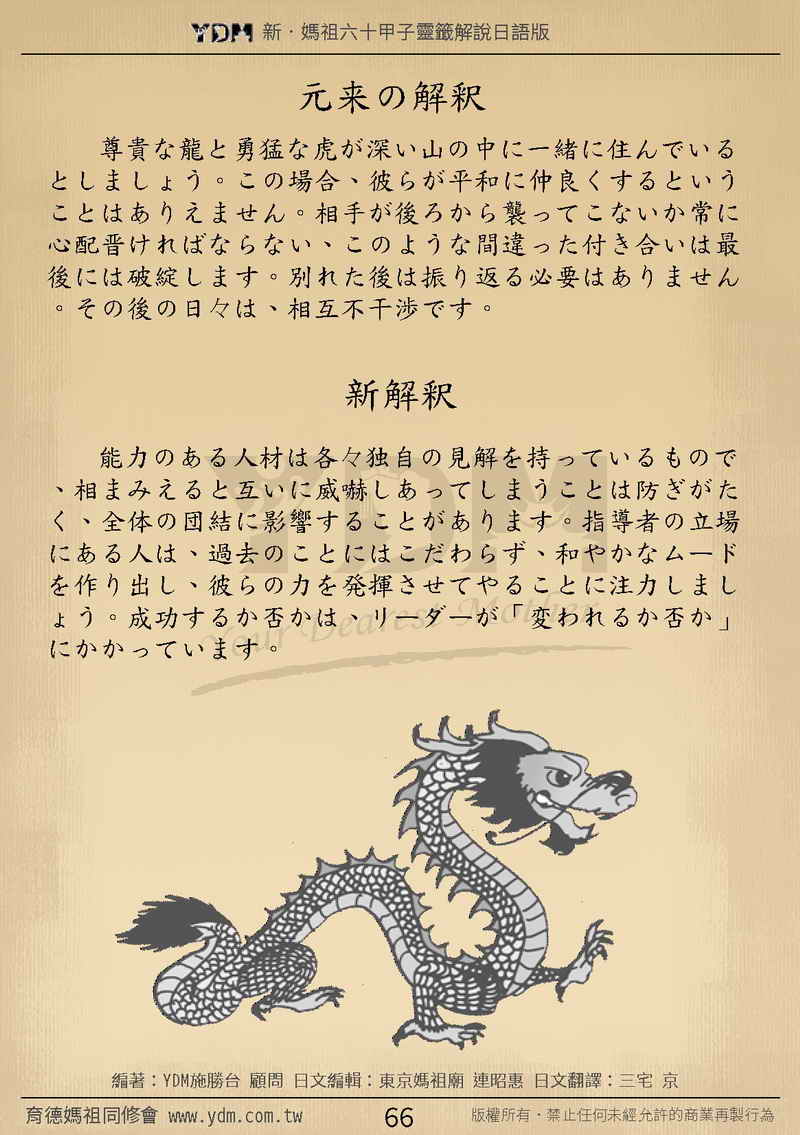 YDM 新・媽祖六十甲子靈籤解說日語版
元来の解釈
尊貴な龍と勇猛な虎が深い山の中に一緒に住んでいる
としましょう。この場合、彼らが平和に仲良くするという
ことはありえません。相手が後ろから襲ってこないか常に
心配晋ければならない、このような間違った付き合いは最
後には破綻します。別れた後は振り返る必要はありません
。その後の日々は、相互不干渉です。
新解釈
能力のある人材は各々独自の見解を持っているもので
、相まみえると互いに威嚇しあってしまうことは防ぎがた
く、全体の団結に影響することがあります。指導者の立場
にある人は、過去のことにはこだわらず、和やかなムード
を作り出し、彼らの力を発揮させてやることに注力しまし
ょう。成功するか否かは、リーダーが「変われるか否か」
にかかっています。
YDM
Your Dearest Mother
編著：YDM施勝台 顧問 日文編輯：東京媽祖廟 連昭惠 日文翻譯：三宅 京
育德媽祖同修會 www.ydm.com.tw 66 版權所有・禁止任何未經允許的商業再製行為